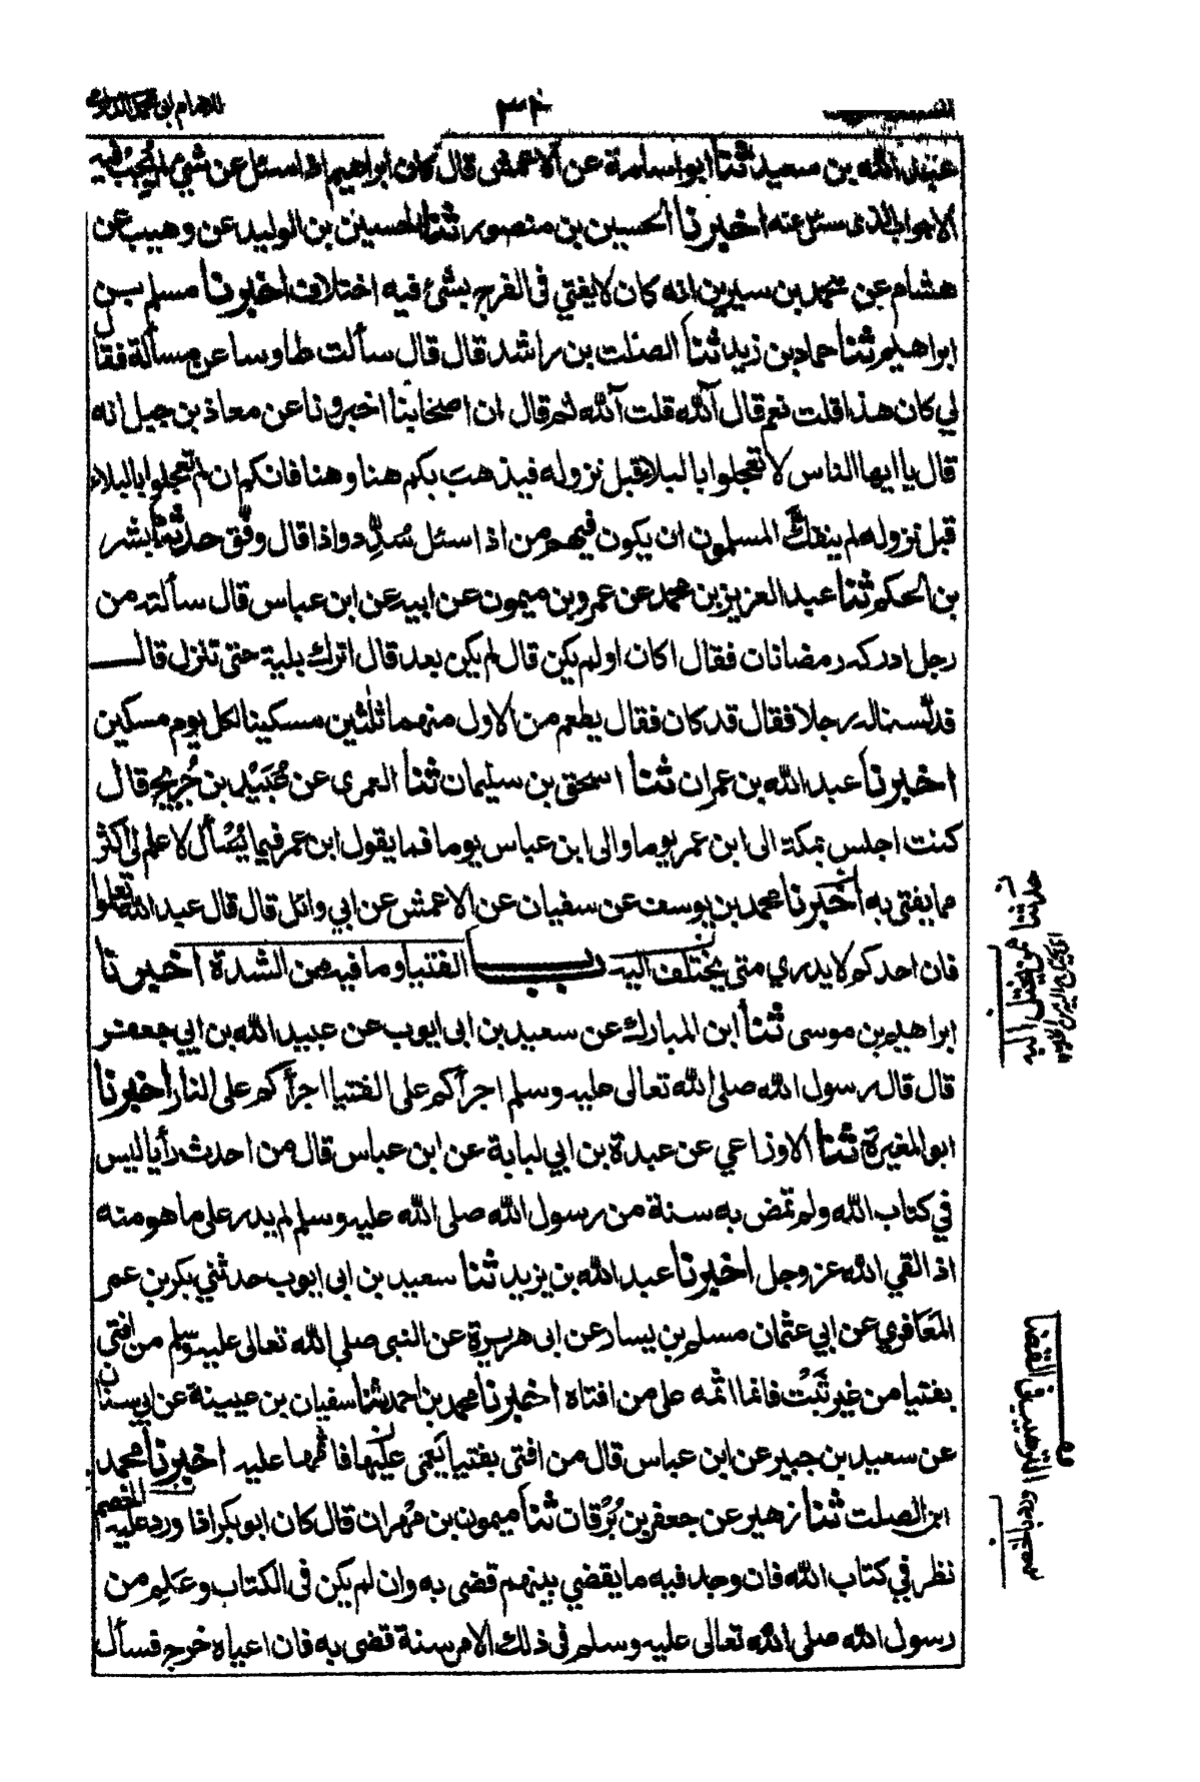 عبد الله بن سعيد ثنا ابو اسامة عن الاعمش قال كان ابراهيم اذا سئل عن شيء لم يجب فيه
الا جواب الذى سئل عنه اخبرنا الحسين بن منصور ثنا الحسين بن الوليد عن وهيب عن
هشام عن محمد بن سيرين انه كان لا يفتي فى الفرج بشئ فيه اختلاف اخبرنا مسلم بن
ابراهيم ثنا حماد بن زيد ثنا الصلت بن راشد قال قال سألت طاوسا عن مسألة فقال
لي كان هذا قلت نعم قال آلله قلت آلله ثم قال ان اصحابنا اخبرونا عن معاذ بن جبل انه
قال يا ايها الناس لا تعجلوا بالبلاء قبل نزوله فيذهب بكم هنا وهنا فانكم ان لم تعجلوا بالبلاء
قبل نزوله لم ينفك المسلمون ان يكون فيهم من اذا سئل سُدِّد واذا قال وفّق حدثنا بشر
بن الحكم ثنا عبد العزيز بن محمد عن عمرو بن ميمون عن ابيه عن ابن عباس قال سألته من
رجل ادركه رمضانان فقال اكان او لم يكن قال لم يكن بعد قال اترك بلية حتى تنزل قال
قد لسنا له رجلا فقال قد كان فقال يطعم من الاول منهما ثلثين مسكينا لكل يوم مسكين
اخبرنا عبد الله بن عمران ثنا اسحق بن سليمان ثنا العمرى عن عُبَيْد بن جُرَيج قال
كنت اجلس بمكة الى ابن عمر يوما والى ابن عباس يوما فما يقول ابن عمر فيما يُسْأل لا علم لى اكثر
مما يفتى به اخبرنا محمد بن يوسف عن سفيان عن الاعمش عن ابي وائل قال قال عبد الله تعلموا
فان احدكم لا يدري متى يختلف اليه باب الفتيا وما فيه من الشدة اخبرنا
ابراهيم بن موسى ثنا ابن المبارك عن سعيد بن ابى ايوب عن عبيد الله بن ابي جعفر
قال قال رسول الله صلى الله تعالى عليه وسلم اجرأكم على الفتيا اجرأكم على النار اخبرنا
ابو المغيرة ثنا الاوزاعي عن عبدة بن ابي لبابة عن ابن عباس قال من احدث رأيا ليس
في كتاب الله ولم تمض به سنة من رسول الله صلى الله عليه وسلم لم يدر على ما هو منه
اذا لقي الله عز وجل اخبرنا عبد الله بن يزيد ثنا سعيد بن ابى ايوب حدثني بكر بن عمر
المَعَافري عن ابي عثمان مسلم بن يسار عن ابى هريرة عن النبى صلى الله تعالى عليه وسلم من افتى
بفتيا من غير ثَبْت فانما اثمه على من افتاه اخبرنا محمد بن احمد ثنا سفيان بن عيينة عن ابي سنان
عن سعيد بن جبير عن ابن عباس قال من افتى بفتيا يُعَمى عليها فاثمها عليه اخبرنا محمد
ابن الصلت ثنا زهير عن جعفر بن بُرْقان ثنا ميمون بن مهران قال كان ابو بكر اذا ورد عليه الخصم
نظر في كتاب الله فان وجد فيه ما يقضي بينهم قضى به وان لم يكن فى الكتاب وعَلِم من
رسول الله صلى الله تعالى عليه وسلم فى ذلك الامر سنة قضى به فان اعياه خرج فسأل